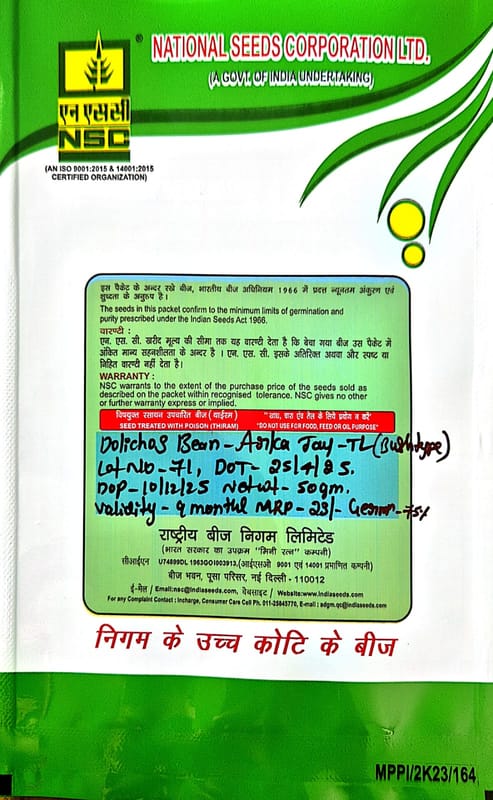 NATIONAL SEEDS CORPORATION LTD.
(A GOVT. OF INDIA UNDERTAKING)
एन एस सी
NSC
(AN ISO 9001:2015 & 14001:2015
CERTIFIED ORGANIZATION)
इस पैकेट के अन्दर रखे बीज, भारतीय बीज अधिनियम 1966 में प्रदत्त न्यूनतम अंकुरण एवं
शुध्दता के अनुरूप है।
The seeds in this packet confirm to the minimum limits of germination and
purity prescribed under the Indian Seeds Act 1966.
वारण्टी :
एन. एस. सी. खरीद मूल्य की सीमा तक यह वारण्टी देता है कि बेचा गया बीज उस पैकेट में
अंकित मान्य सहनशीलता के अन्दर है । एन. एस. सी. इसके अतिरिक्त अथवा और स्पष्ट या
निहित वारण्टी नहीं देता है।
WARRANTY :
NSC warrants to the extent of the purchase price of the seeds sold as
described on the packet within recognised tolerance. NSC gives no other
or further warranty express or implied.
विषयुक्त रसायन उपचारित बीज (थाईरम) "खाद्य, चारा एंव तेल के लिये प्रयोग न करें"
SEED TREATED WITH POISON (THIRAM) "DO NOT USE FOR FOOD, FEED OR OIL PURPOSE"
Dolichos Bean - Arka Jay - TL (Bushtype)
Lot No - 71, DOT - 25/4/25.
DOP - 10/12/25 Net wt - 50gm.
Validity - 9 month MRP - 23/- Germn - 75%
राष्ट्रीय बीज निगम लिमिटेड
(भारत सरकार का उपक्रम "मिनी रत्न" कम्पनी)
सीआईएन U74899DL1963GOI003913, (आईएसओ 9001 एवं 14001 प्रमाणित कम्पनी)
बीज भवन, पूसा परिसर, नई दिल्ली - 110012
ई-मेल / Email:nsc@indiaseeds.com, वेबसाइट / Website:www.indiaseeds.com
For any Complaint Contact : Incharge, Consumer Care Cell Ph. 011-25845770, E-mail : adgm.qc@indiaseeds.com
निगम के उच्च कोटि के बीज
MPPI/2K23/164